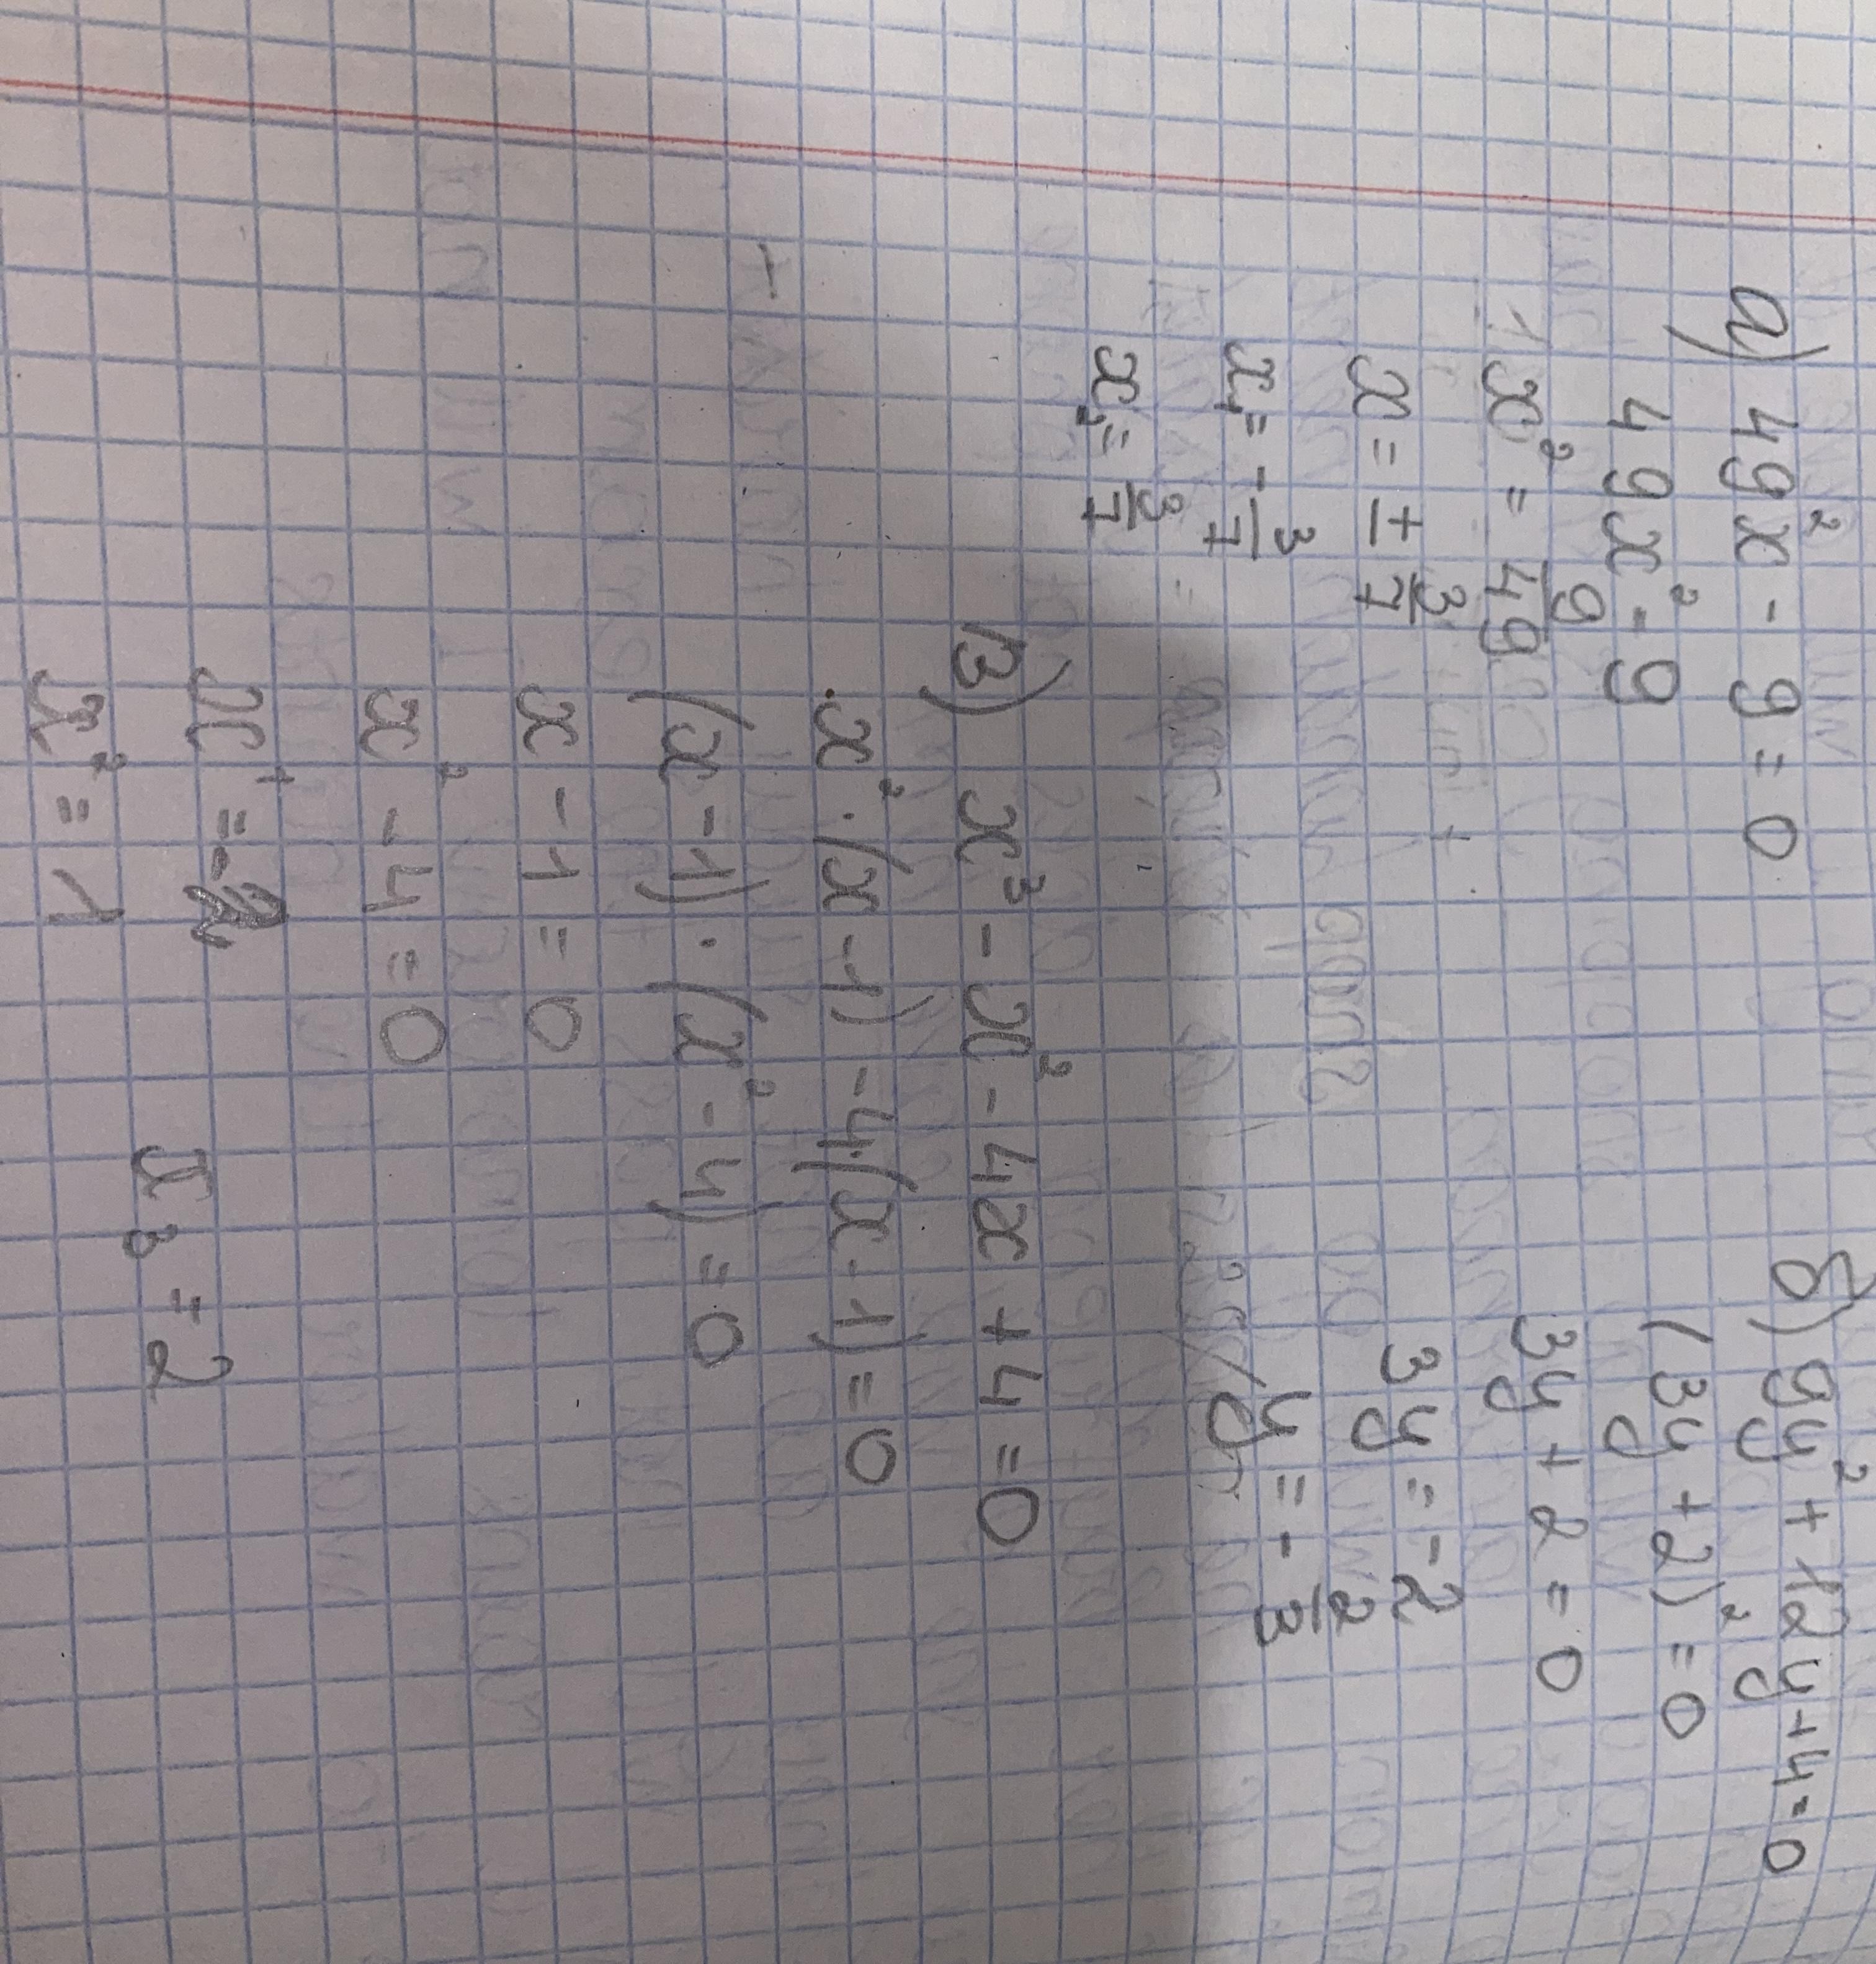 а) 49x² - 9 = 0
49x² = 9
x² = 9/49
x = ± 3/7
x₁ = - 3/7
x₂ = 3/7
б) 9y² + 12y + 4 = 0
(3y + 2)² = 0
3y + 2 = 0
3y = -2
y = - 2/3
в) x³ - x² - 4x + 4 = 0
x² · (x - 1) - 4·(x - 1) = 0
(x - 1) · (x² - 4) = 0
x - 1 = 0
x² - 4 = 0
x₁ = -2
x₂ = 1
x₃ = 2